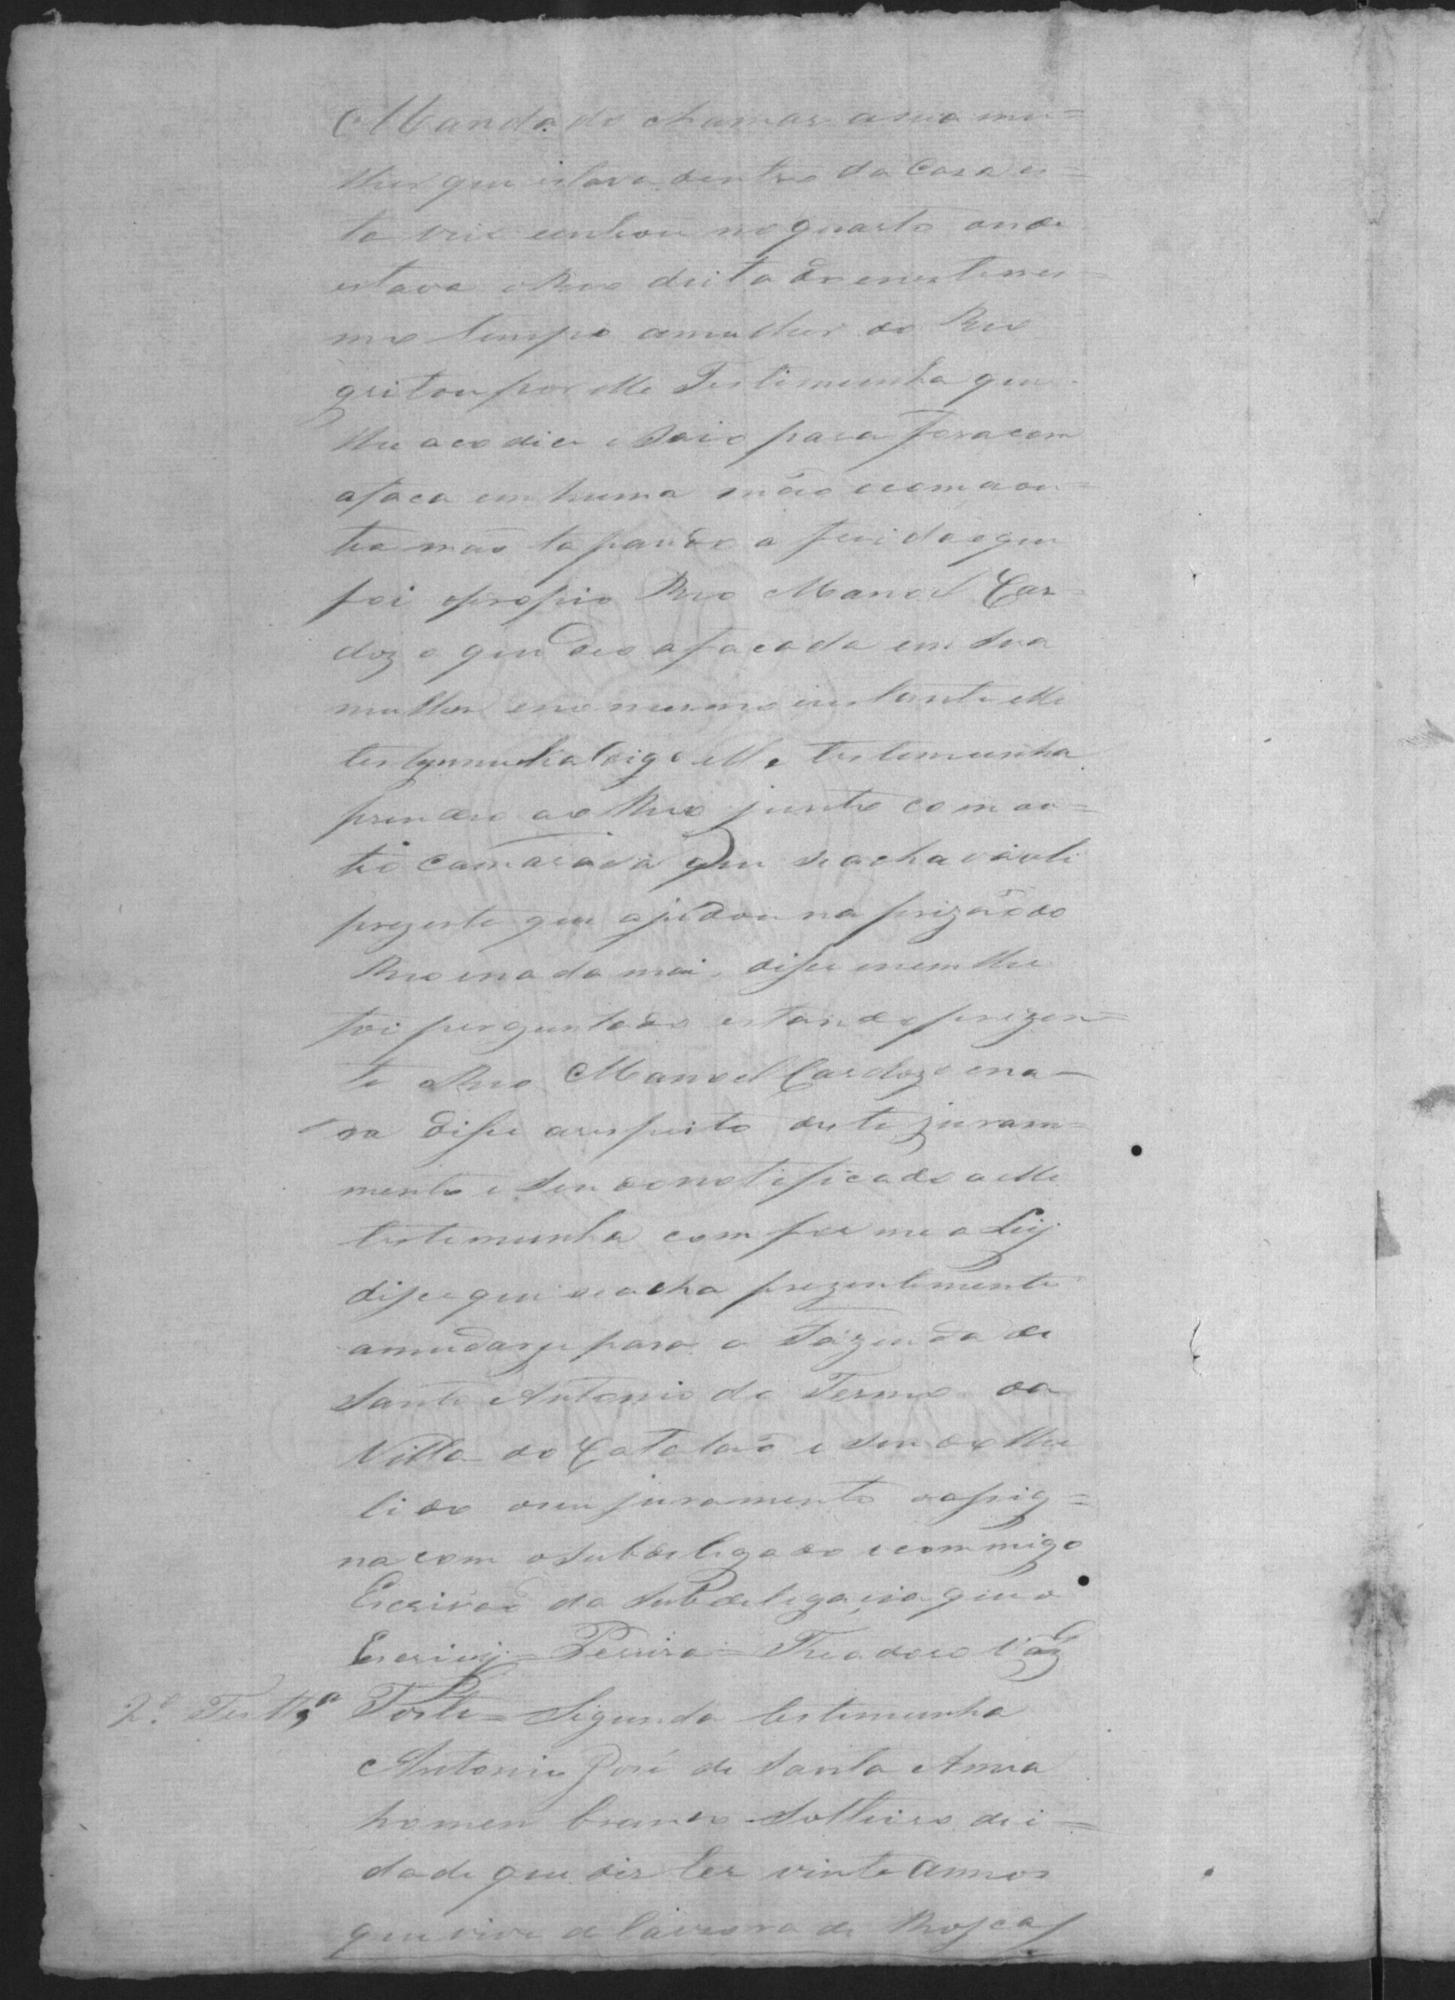 Mandado chamar a sua mu=
lher que estava dentro da Casa es=
ta veio entrou no quarto onde
estava o Reo deitado e neste mes=
mo tempo a mulher do Reo
gritou por elle Testimunha que
lhe acodice e Saio para fora com
a faca em huma mão e com a ou=
tra mão tapando a ferida e que
foi o propio Reo Manoel Car=
dozo que deo a facada em Sua
mulher e no mesmo instante elle
testemunha digo elle testemunha
prendeo ao Reo junto com ou=
tro camarada que se achava ali
prezente que ajudou na prizão do
Reo e nada mais disse e nem lhe
foi perguntado estando prezen=
te o Reo Manoel Cardozo e na=
da disse a respeito deste juram=
mento e Sendo notificado a elle
testemunha comforme a Ley
disse que se acha prezentemente
a mudarse para a Fazenda de
Santo Antonio do Termo da
Villa do Catalaõ e Sendo lhe
lido o seu juramento o assig=
na com o Subdelegado e commigo
Escrivaõ da Subdelegacia que o
Escrivy = Pereira = Theodoro Vaz
2.ª Testª Forte = Segunda testemunha
Antonio José de Santa Anna
homem branco Solteiro de i=
dade que dis ter vinte annos
que vive de lavoura de Rossas